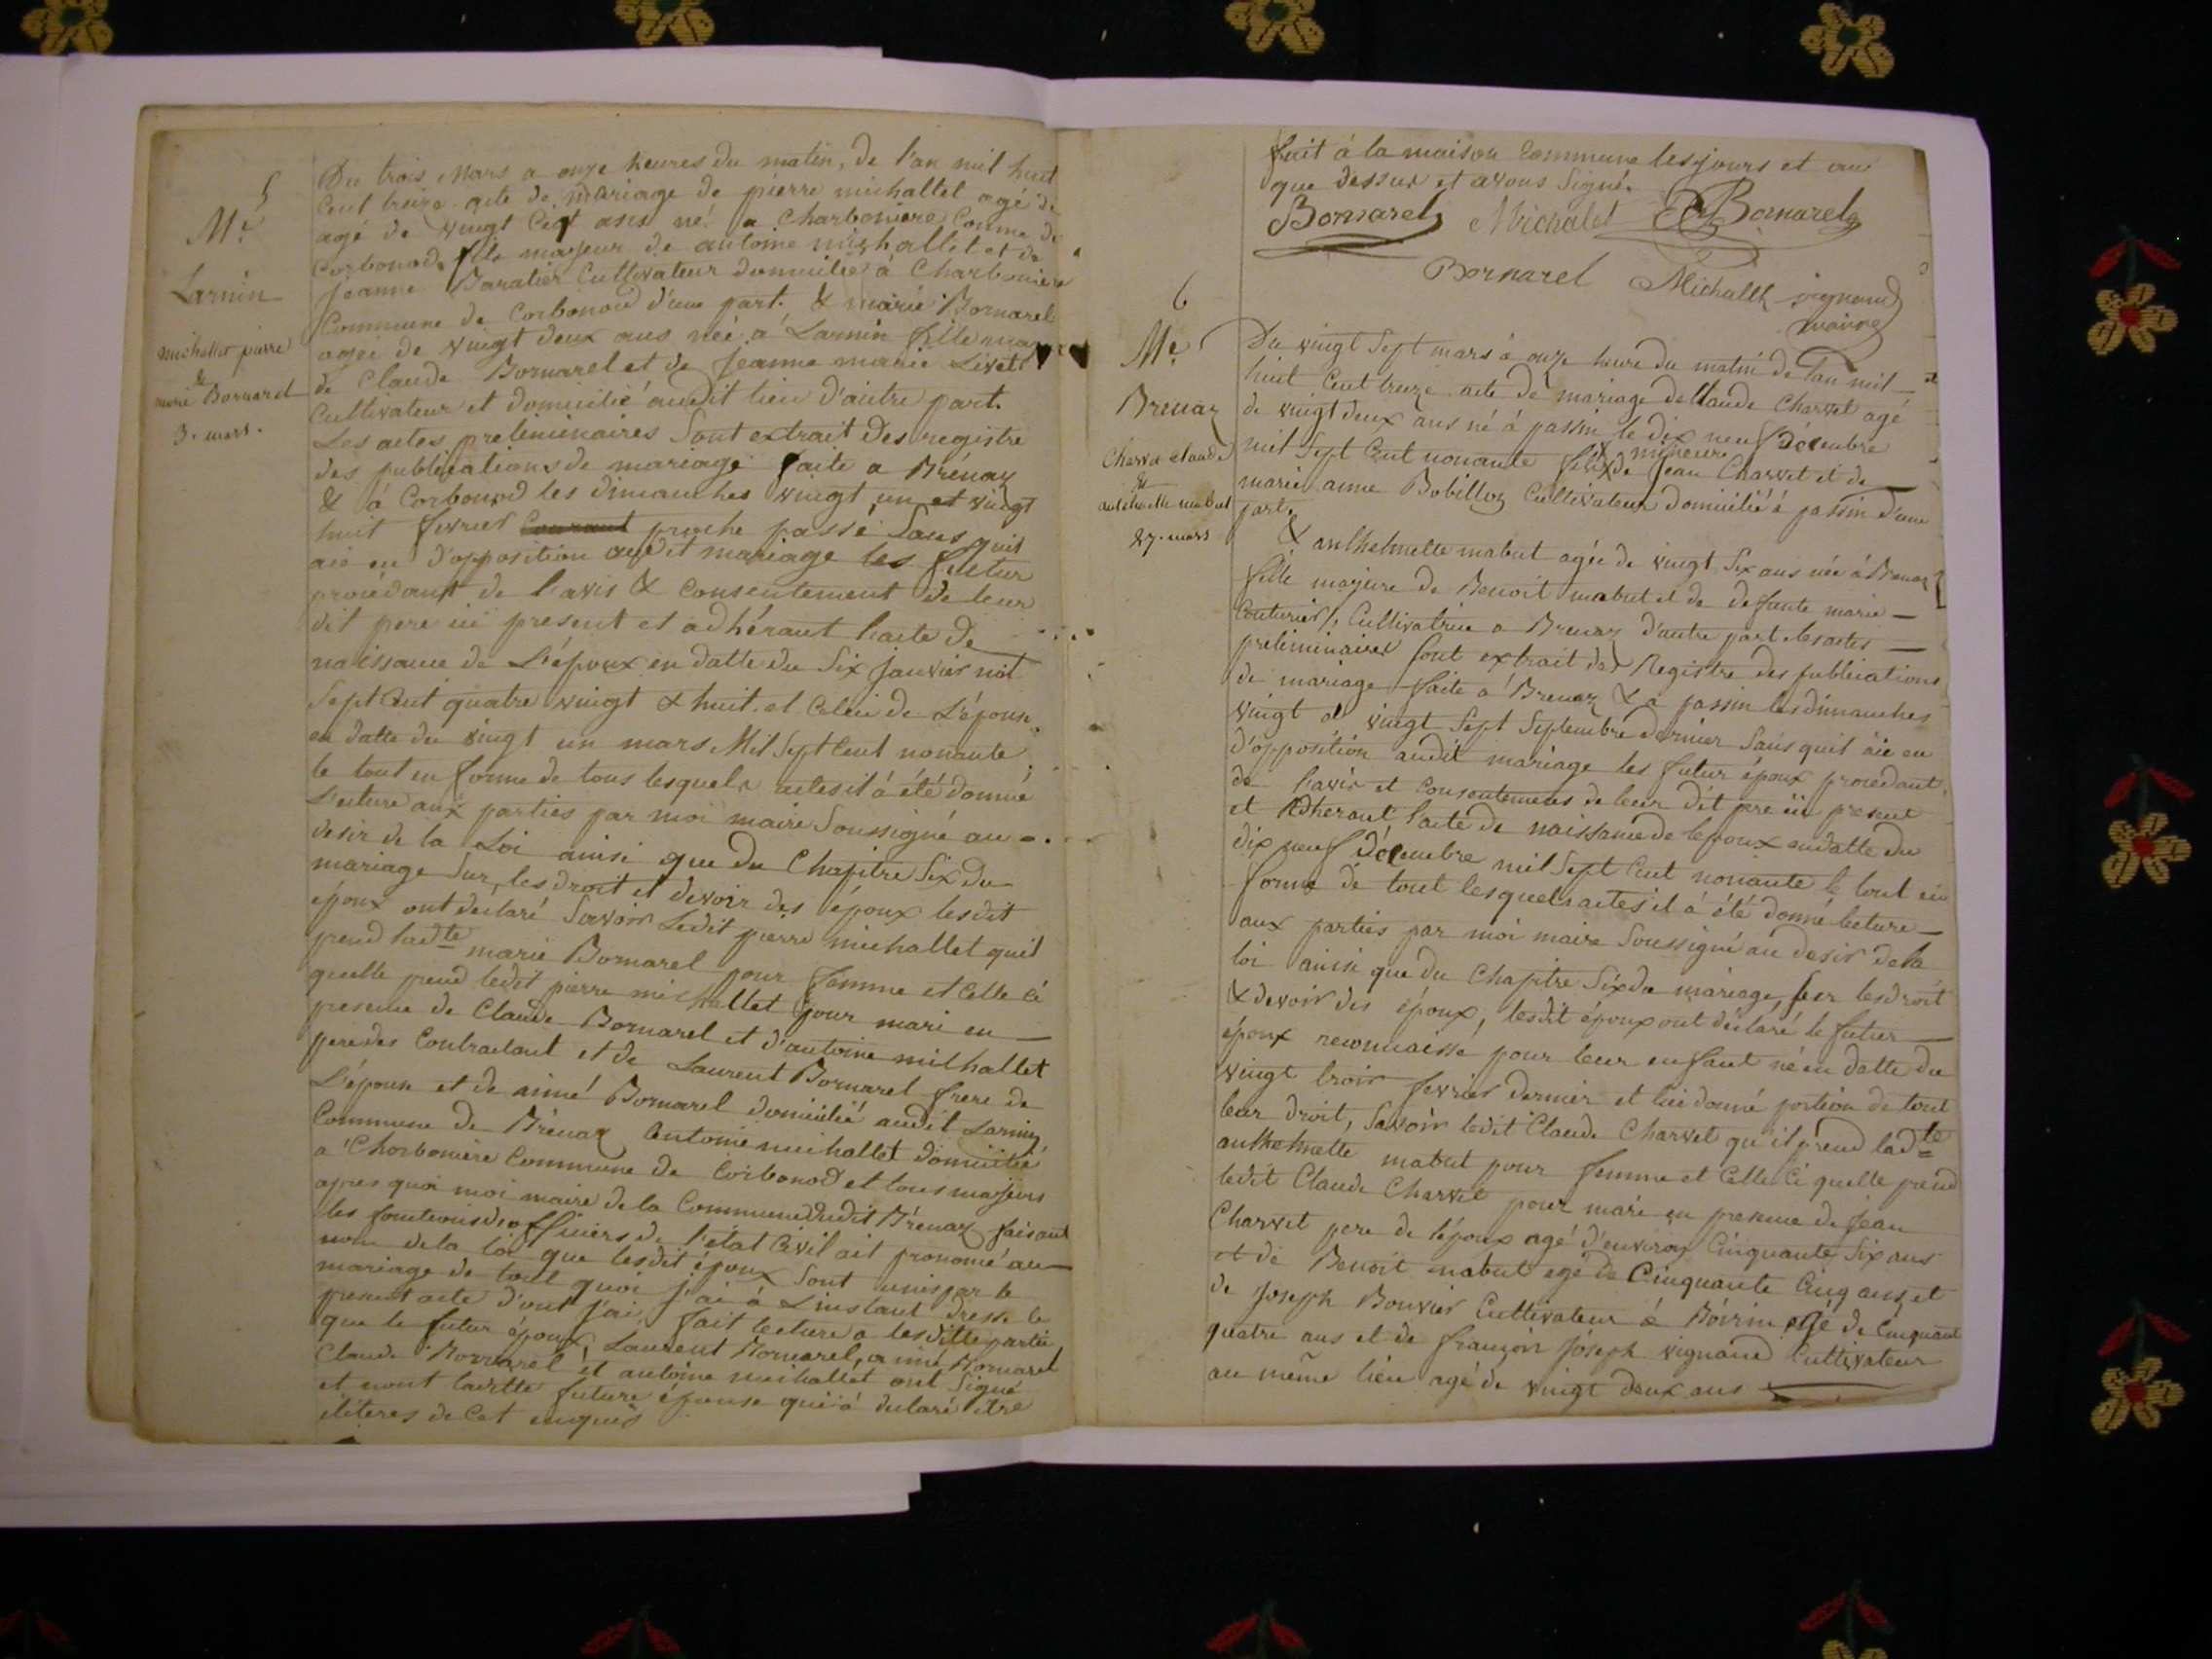 5
Me
Larnin
michallet pierre
&
marie Bornarel
3. mars.
Du trois Mars a onze heures du matin, de l'an mil huit
Cent treize acte de mariage de pierre michallet agé de
agé de vingt Cinq ans né a Charboniere Comme de
Corbonod fils majeur de antoine michallet et de
Jeanne Baratier Cultivateur domicilié à Charboniere
Commune de Corbonod d'une part. & marie Bornarel
agée de vingt deux ans née a Larnin fille maj
de Claude Bornarel et de Jeanne marie Livet
Cultivateur et domicilié audit lieu d'autre part.
Les actes preleminaires Sont extrait des registre
des publications de mariage faite a Brénaz
& à Corbonod les dimanches vingt un et vingt
huit fevrier Courant proche passé Sans quil
aie eu d'opposition audit mariage les futur
procédant de l'avis & Consentement de leur
dit pere ici present et adhérant lacte de
naissance de L'époux en datte du Six Janvier mil
Sept Cent quatre vingt & huit. et Celui de L'épouse
en datte du vingt un mars Mil Sept Cent nonante
le tout en forme de tous lesquels actes il à été donné
Lecture aux parties par moi maire Soussigné au
desir de la Loi ainsi que du Chapitre Six du
mariage Sur les droit et devoir des époux lesdit
époux ont declaré Savoir Ledit pierre michallet quil
prend ladte marie Bornarel pour femme et Celle Ci
quelle prend ledit pierre michallet pour mari en
presence de Claude Bornarel et d'antoine michallet
pere des Contractant et de Laurent Bornarel frere de
L'épouse et de aimé Bornarel domicilié audit Larnin
Commune de Brénaz antoine michallet domicilié
a Charboniere Commune de Corbonod et tous majeurs
apres quoi moi maire de la Commune dudit Brénaz faisant
les fonctions d'officiers de l'état Civil ait prononcé au
nom de la loi que lesdit époux Sont unis par le
mariage de tout quoi j'ai à Linstant dressé le
present acte d'ont j'ai fait lecture a lesditte partie
que le futur époux, Laurent Bornarel, aimé Bornarel
Claude Bornarel et antoine michallet ont Signé
et nont laditte future épouse qui à declaré etre
iliteres de Cet enquis
fait à la maison Commune les jours et an
que dessus et avons Signé.
Bornarel Michalet Bornarel
Bornarel Michallet vignand
maire
6
Me
Brenaz
Charvet claude
&
anthelmette mabut
27. mars
Du vingt Sept mars à onze heure du matin de l'an mil
huit Cent treize acte de mariage de Claude Charvet agé
de vingt deux ans né à passin le dix neuf Décembre
mil Sept Cent nonante fils mineure de Jean Charvet et de
marie anne Bobillon Cultivateur domicilié à passin d'une
part.
& anthelmette mabut agée de vingt Six ans née à Brenaz
fille majeure de Benoit mabut et de defunte marie
Couturier, Cultivatrice a Brenaz d'autre part. les actes
preliminaires Sont extrait des Registre des publications
de mariage faite a Brenaz & a passin les dimanches
vingt & vingt Sept Septembre dernier Sans quil aie eu
d'opposition audit mariage les futur époux procedant
de l'avis et Consentements de leur dit pere ici present
et adherant lacte de naissance de lepoux en datte du
dix neuf Décembre mil Sept Cent nonante le tout en
forme de tout lesquels actes il à été donné lecture
aux parties par moi maire Soussigné au desir de la
loi ainsi que du Chapitre Six du mariage sur les droit
& devoir des époux, lesdit epoux ont déclaré le futur
époux reconnaissé pour leur enfant né en datte du
vingt trois fevrier dernier et lui donné portion de tout
leur droit, Savoir ledit Claude Charvet qu'il prend ladte
anthelmette mabut pour femme et Celle Ci quelle prend
ledit Claude Charvet pour mari en presence de Jean
Charvet pere de l'époux agé d'environ Cinquante Six ans
et de Benoit mabut agé de Cinquante Cinq ans, et
de Joseph Bouvier Cultivateur à Boirin agé de Cinquant
quatre ans et de françois Joseph vignand Cultivateur
au même lieu agé de vingt deux ans